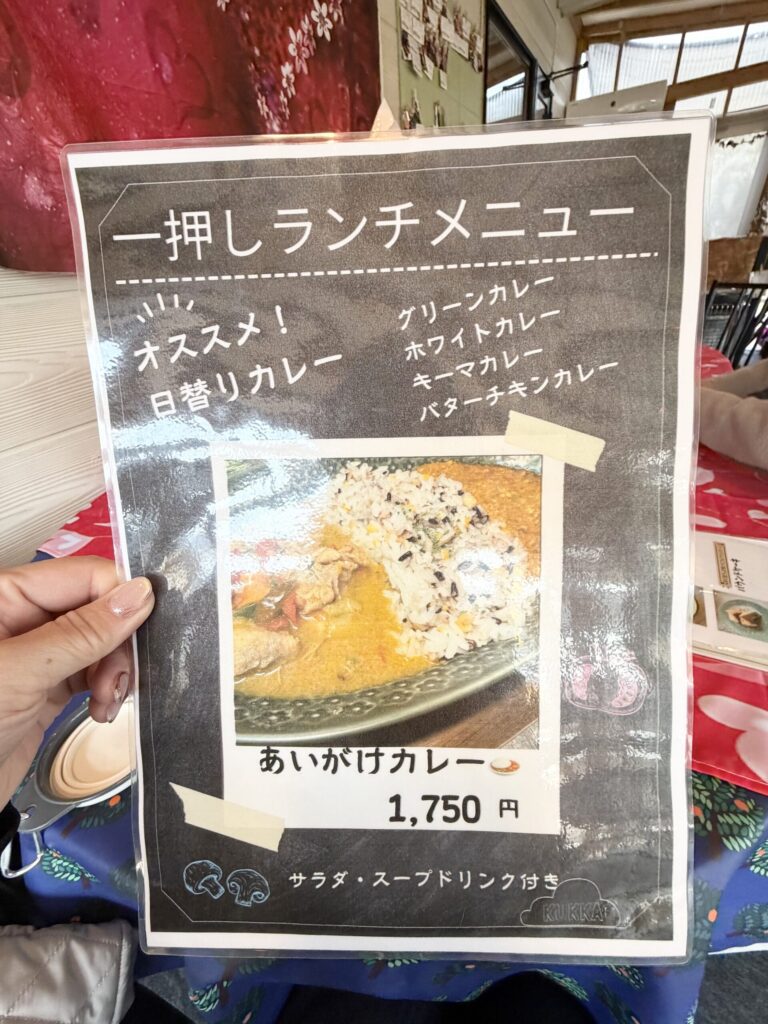 一押しランチメニュー
オススメ！
日替りカレー
グリーンカレー
ホワイトカレー
キーマカレー
バターチキンカレー
あいがけカレー
1,750 円
サラダ・スープドリンク付き
KUKKA